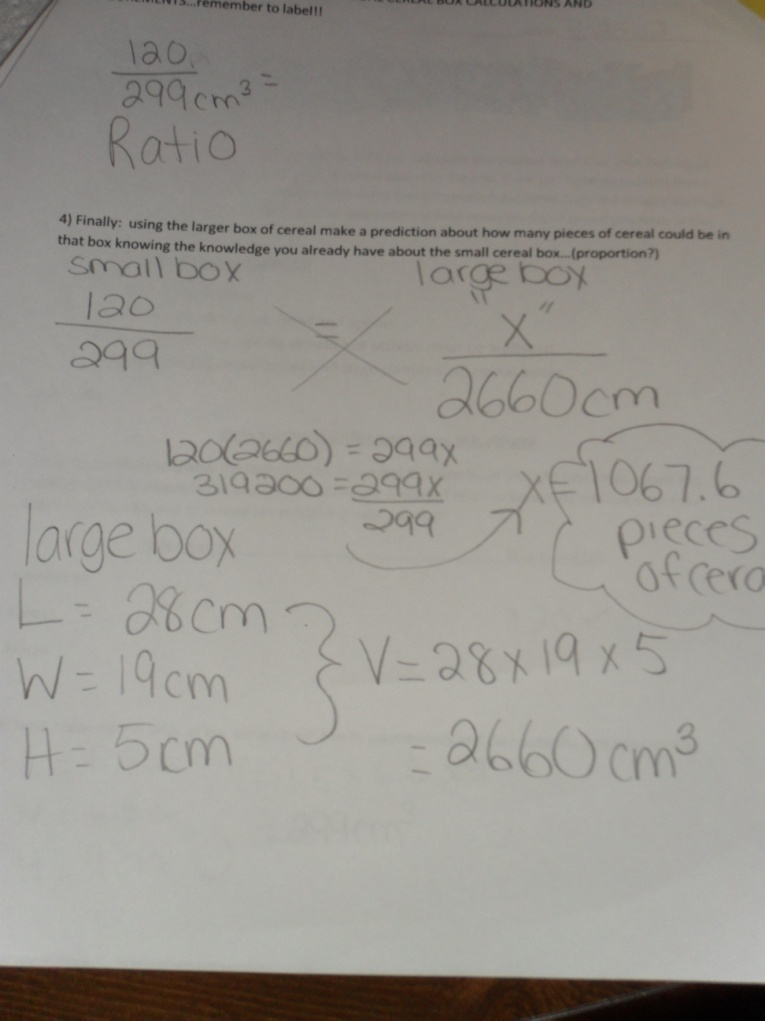 ...remember to label!!
CEREAL BOX CALCULATIONS AND
120
299cm³ =
Ratio
4) Finally: using the larger box of cereal make a prediction about how many pieces of cereal could be in
that box knowing the knowledge you already have about the small cereal box...(proportion?)
small box
large box
120
299
=
"X"
2660cm
120(2660) = 299x
319200 = 299x
299
x = 1067.6
pieces
of cerea
large box
L = 28cm
W = 19cm
H = 5cm
V = 28 x 19 x 5
= 2660 cm³